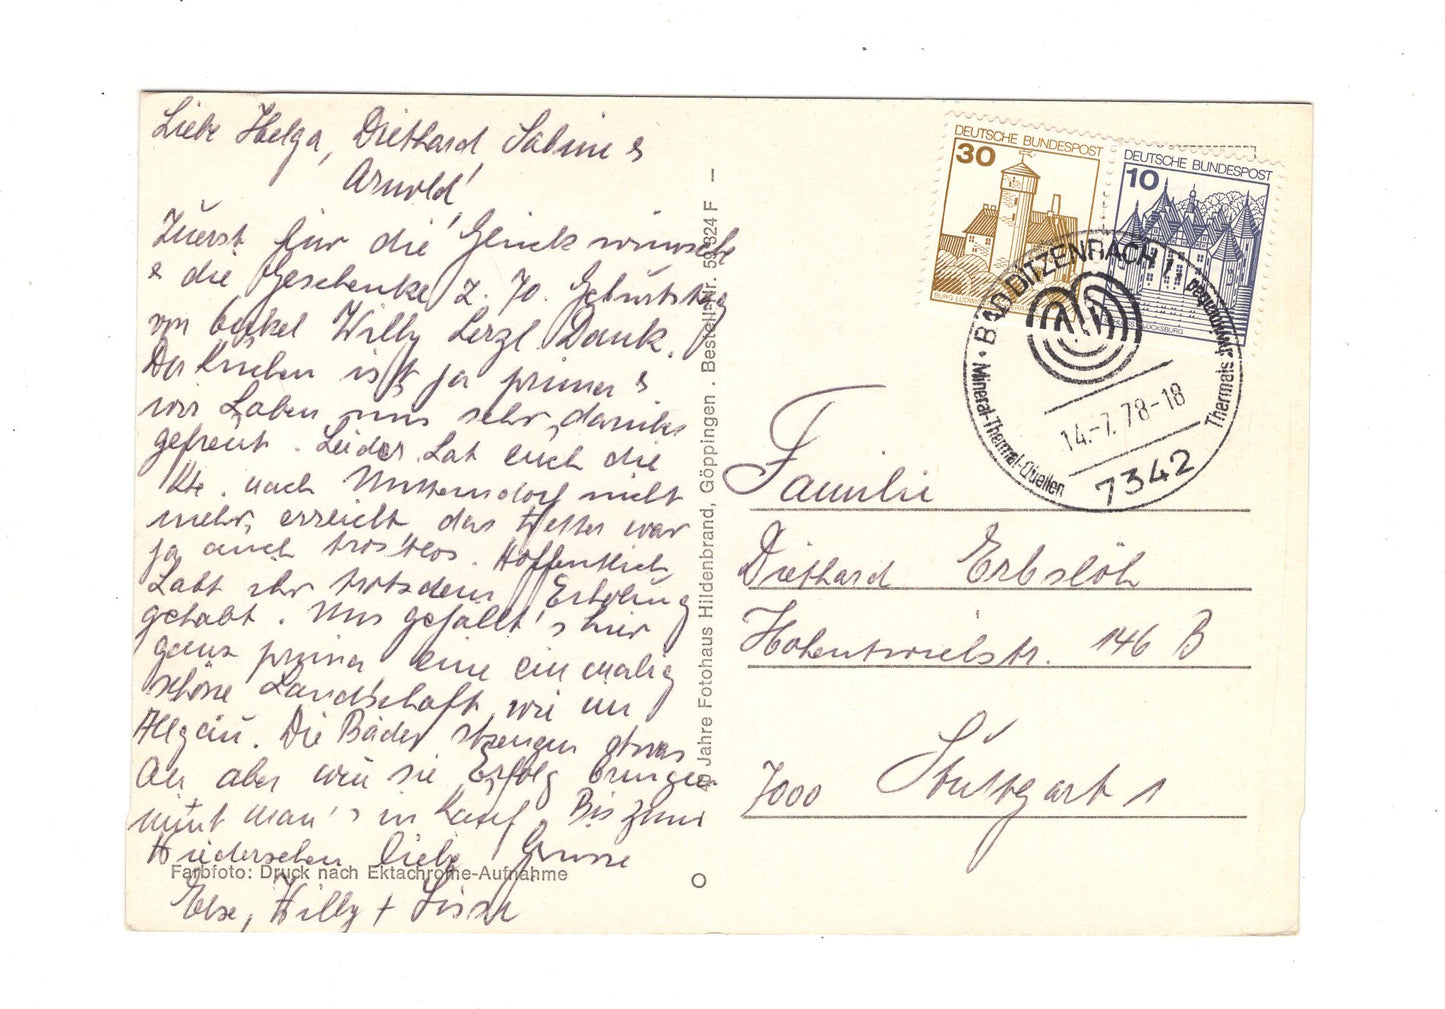 Liebe Helga, Diethard Sabine &
Arnold!
Zuerst für die Glückwünsche
& die Geschenke z. 70. Geburtstag
von Willy herzl. Dank.
Der Kuchen ist ja prima &
wir haben uns sehr darüber
gefreut. Leider hat euch die
Kte. nach Mitterndorf nicht
mehr erreicht, das Wetter war
ja auch trostlos. Hoffentlich
habt ihr trotzdem Erholung
gehabt. Uns gefällt's hier
ganz prima eine einmalig
schöne Landschaft wie im
Allgäu. Die Bäder strengen etwas
an aber wenn sie Erfolg bringen
nimt man's in Kauf. Bis zum
Wiedersehen liebe Grüsse
Else, Willy +
Farbfoto: Druck nach Ektachrome-Aufnahme
40 Jahre Fotohaus Hildenbrand, Göppingen . Bestell-Nr. 59 824 F
DEUTSCHE BUNDESPOST
30
DEUTSCHE BUNDESPOST
10
BAD DITZENBACH 1
Mineral-Thermal-Quellen
Thermals
14.-7.78-18
7342
Familie
Diethard Erbslöh
Hohentwielstr. 146 B
7000 Stuttgart 1